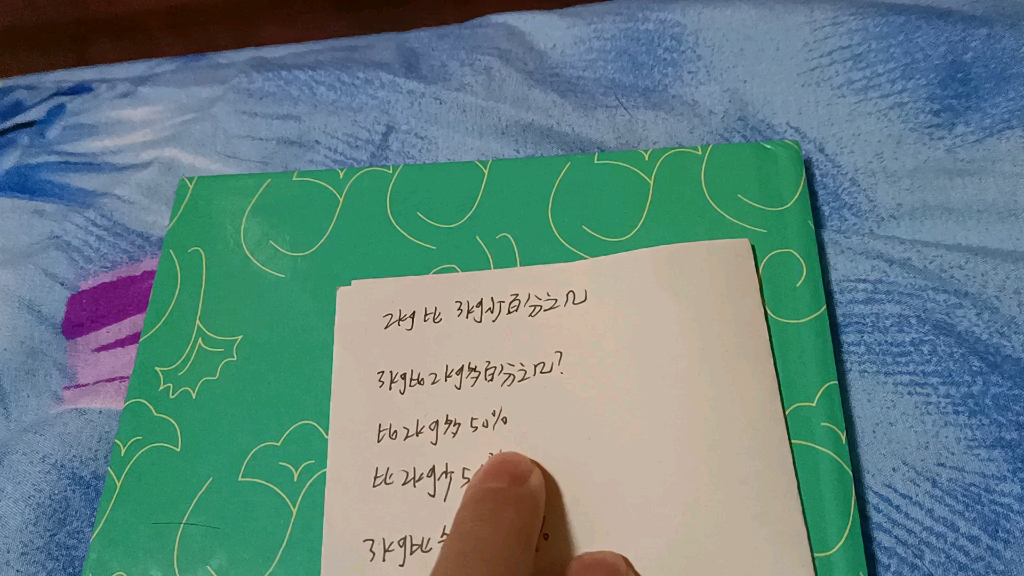 2kg比 3kg少百分之几
3kg比2kg多百分之几?
比2kg多50%
比2kg少5
3kg比